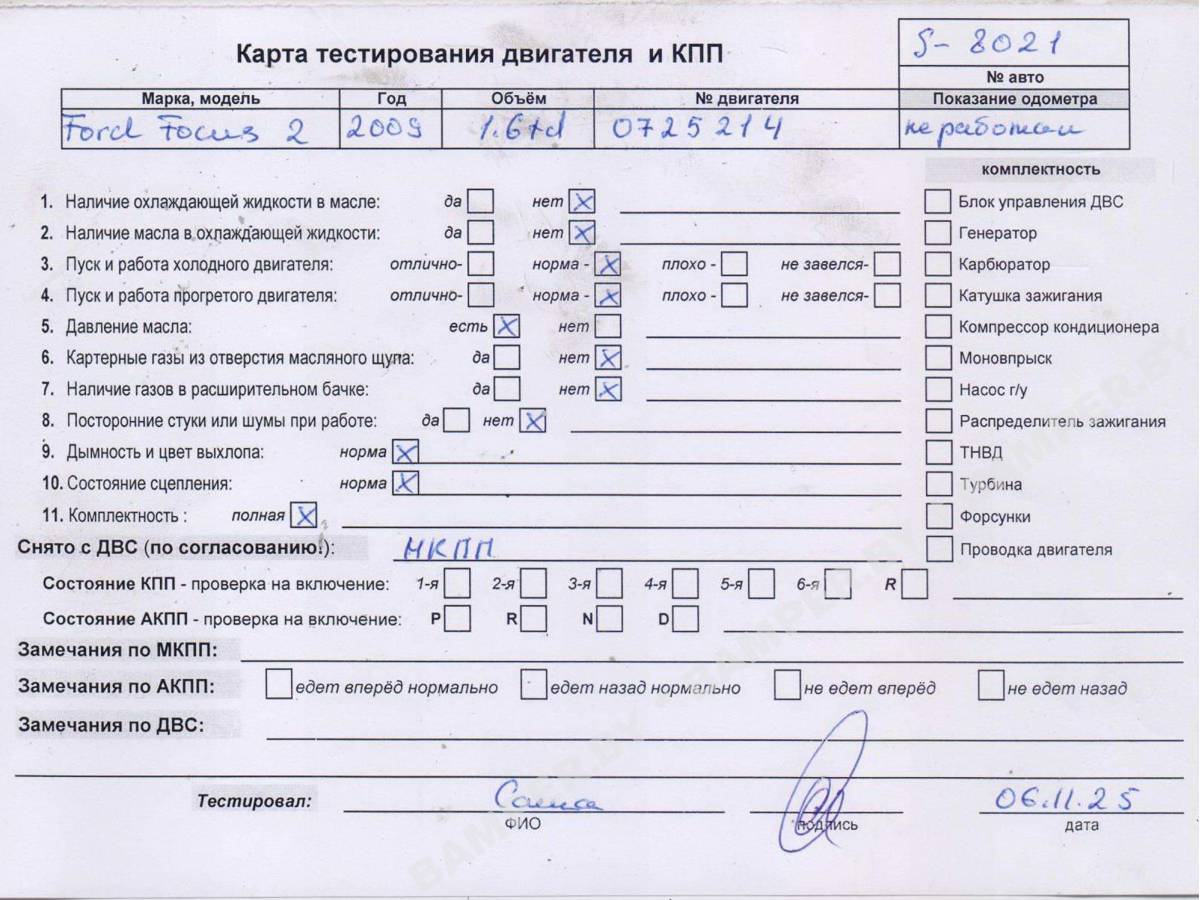 S-8021
Карта тестирования двигателя и КПП
№ авто
Марка, модель Год Объём № двигателя Показание одометра
Ford Focus 2 2009 1.6td 0725214 не работал
комплектность
1. Наличие охлаждающей жидкости в масле: да нет Блок управления ДВС
2. Наличие масла в охлаждающей жидкости: да нет Генератор
3. Пуск и работа холодного двигателя: отлично- норма - плохо - не завелся- Карбюратор
4. Пуск и работа прогретого двигателя: отлично- норма - плохо - не завелся- Катушка зажигания
5. Давление масла: есть нет Компрессор кондиционера
6. Картерные газы из отверстия масляного щупа: да нет Моновпрыск
7. Наличие газов в расширительном бачке: да нет Насос г/у
8. Посторонние стуки или шумы при работе: да нет Распределитель зажигания
9. Дымность и цвет выхлопа: норма ТНВД
10. Состояние сцепления: норма Турбина
11. Комплектность : полная Форсунки
Снято с ДВС (по согласованию!): МКПП Проводка двигателя
Состояние КПП - проверка на включение: 1-я 2-я 3-я 4-я 5-я 6-я R
Состояние АКПП - проверка на включение: P R N D
Замечания по МКПП:
Замечания по АКПП: едет вперёд нормально едет назад нормально не едет вперёд не едет назад
Замечания по ДВС:
Тестировал: Саша 06.11.25
ФИО подпись дата
BAMPER.BY